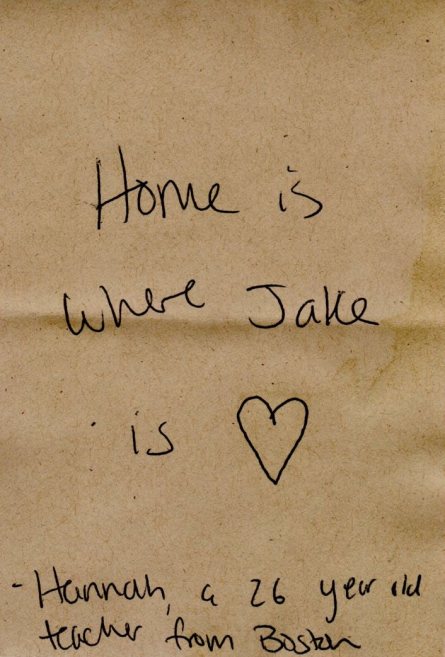 Home is
where Jake
is ♡
- Hannah, a 26 year old
teacher from Boston